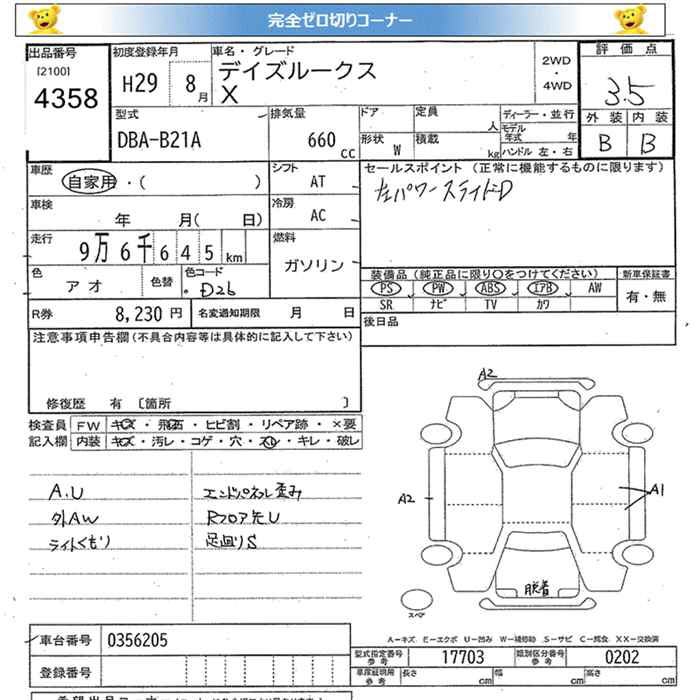 完全ゼロ切りコーナー
出品番号 初度登録年月 車名・グレード 評価点
[2100] H29 8月 デイズルークス 2WD・4WD 3.5
4358 X 外装 内装
型式 排気量 ドア 定員 人 ディーラー・並行 B B
DBA-B21A 660 cc 形状 W 積載 kg モデル年式 年
ハンドル 左・右
車歴 シフト セールスポイント (正常に機能するものに限ります)
自家用・( ) AT 左パワースライドD
車検 冷房
年 月( 日) AC
走行 燃料
9万6千645km ガソリン
色 色替 色コード 装備品(純正品に限り○をつけてください) 新車保証書
アオ D26 PS PW ABS エアB AW 有・無
SR ナビ TV カワ
R券 8,230円 名変通知期限 月 日 後日品
注意事項申告欄(不具合内容等は具体的に記入して下さい)
修復歴 有 [箇所 ]
検査員 FW キズ・飛石・ヒビ割・リペア跡・×要
記入欄 内装 キズ・汚レ・コゲ・穴・スレ・キレ・破レ
A2
A.U エンドパネル歪み
外AW Rフロア先U A2 A1
ライトくもり 足廻りS
脱着
スペア
A-キズ E-エクボ U-凹み W-補修跡 S-サビ C-腐食 XX-交換済
車台番号 0356205
型式指定番号 参考 17703 類別区分番号 参考 0202
登録番号 参考 長さ cm 幅 cm 高さ cm